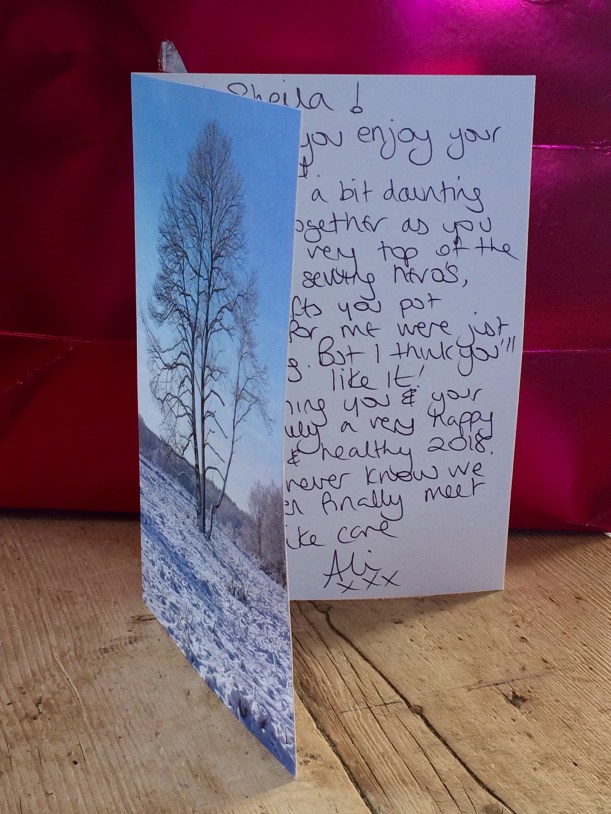 Sheila!
you enjoy your
a bit daunting
ogether as you
very top of the
sewing hero's,
fts you put
for me were just
s. But I think you'll
like it!
ing you & your
ily a very happy
& healthy 2018.
never know we
en finally meet
ke care
Ali
xxx